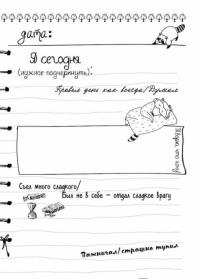 дата:
Я сегодня
(нужное подчеркнуть):
Провел день как всегда/Думал
Творил, что хочу
Съел много сладкого/
Был не в себе – отдал сладкое врагу
Психовал/страшно тупил